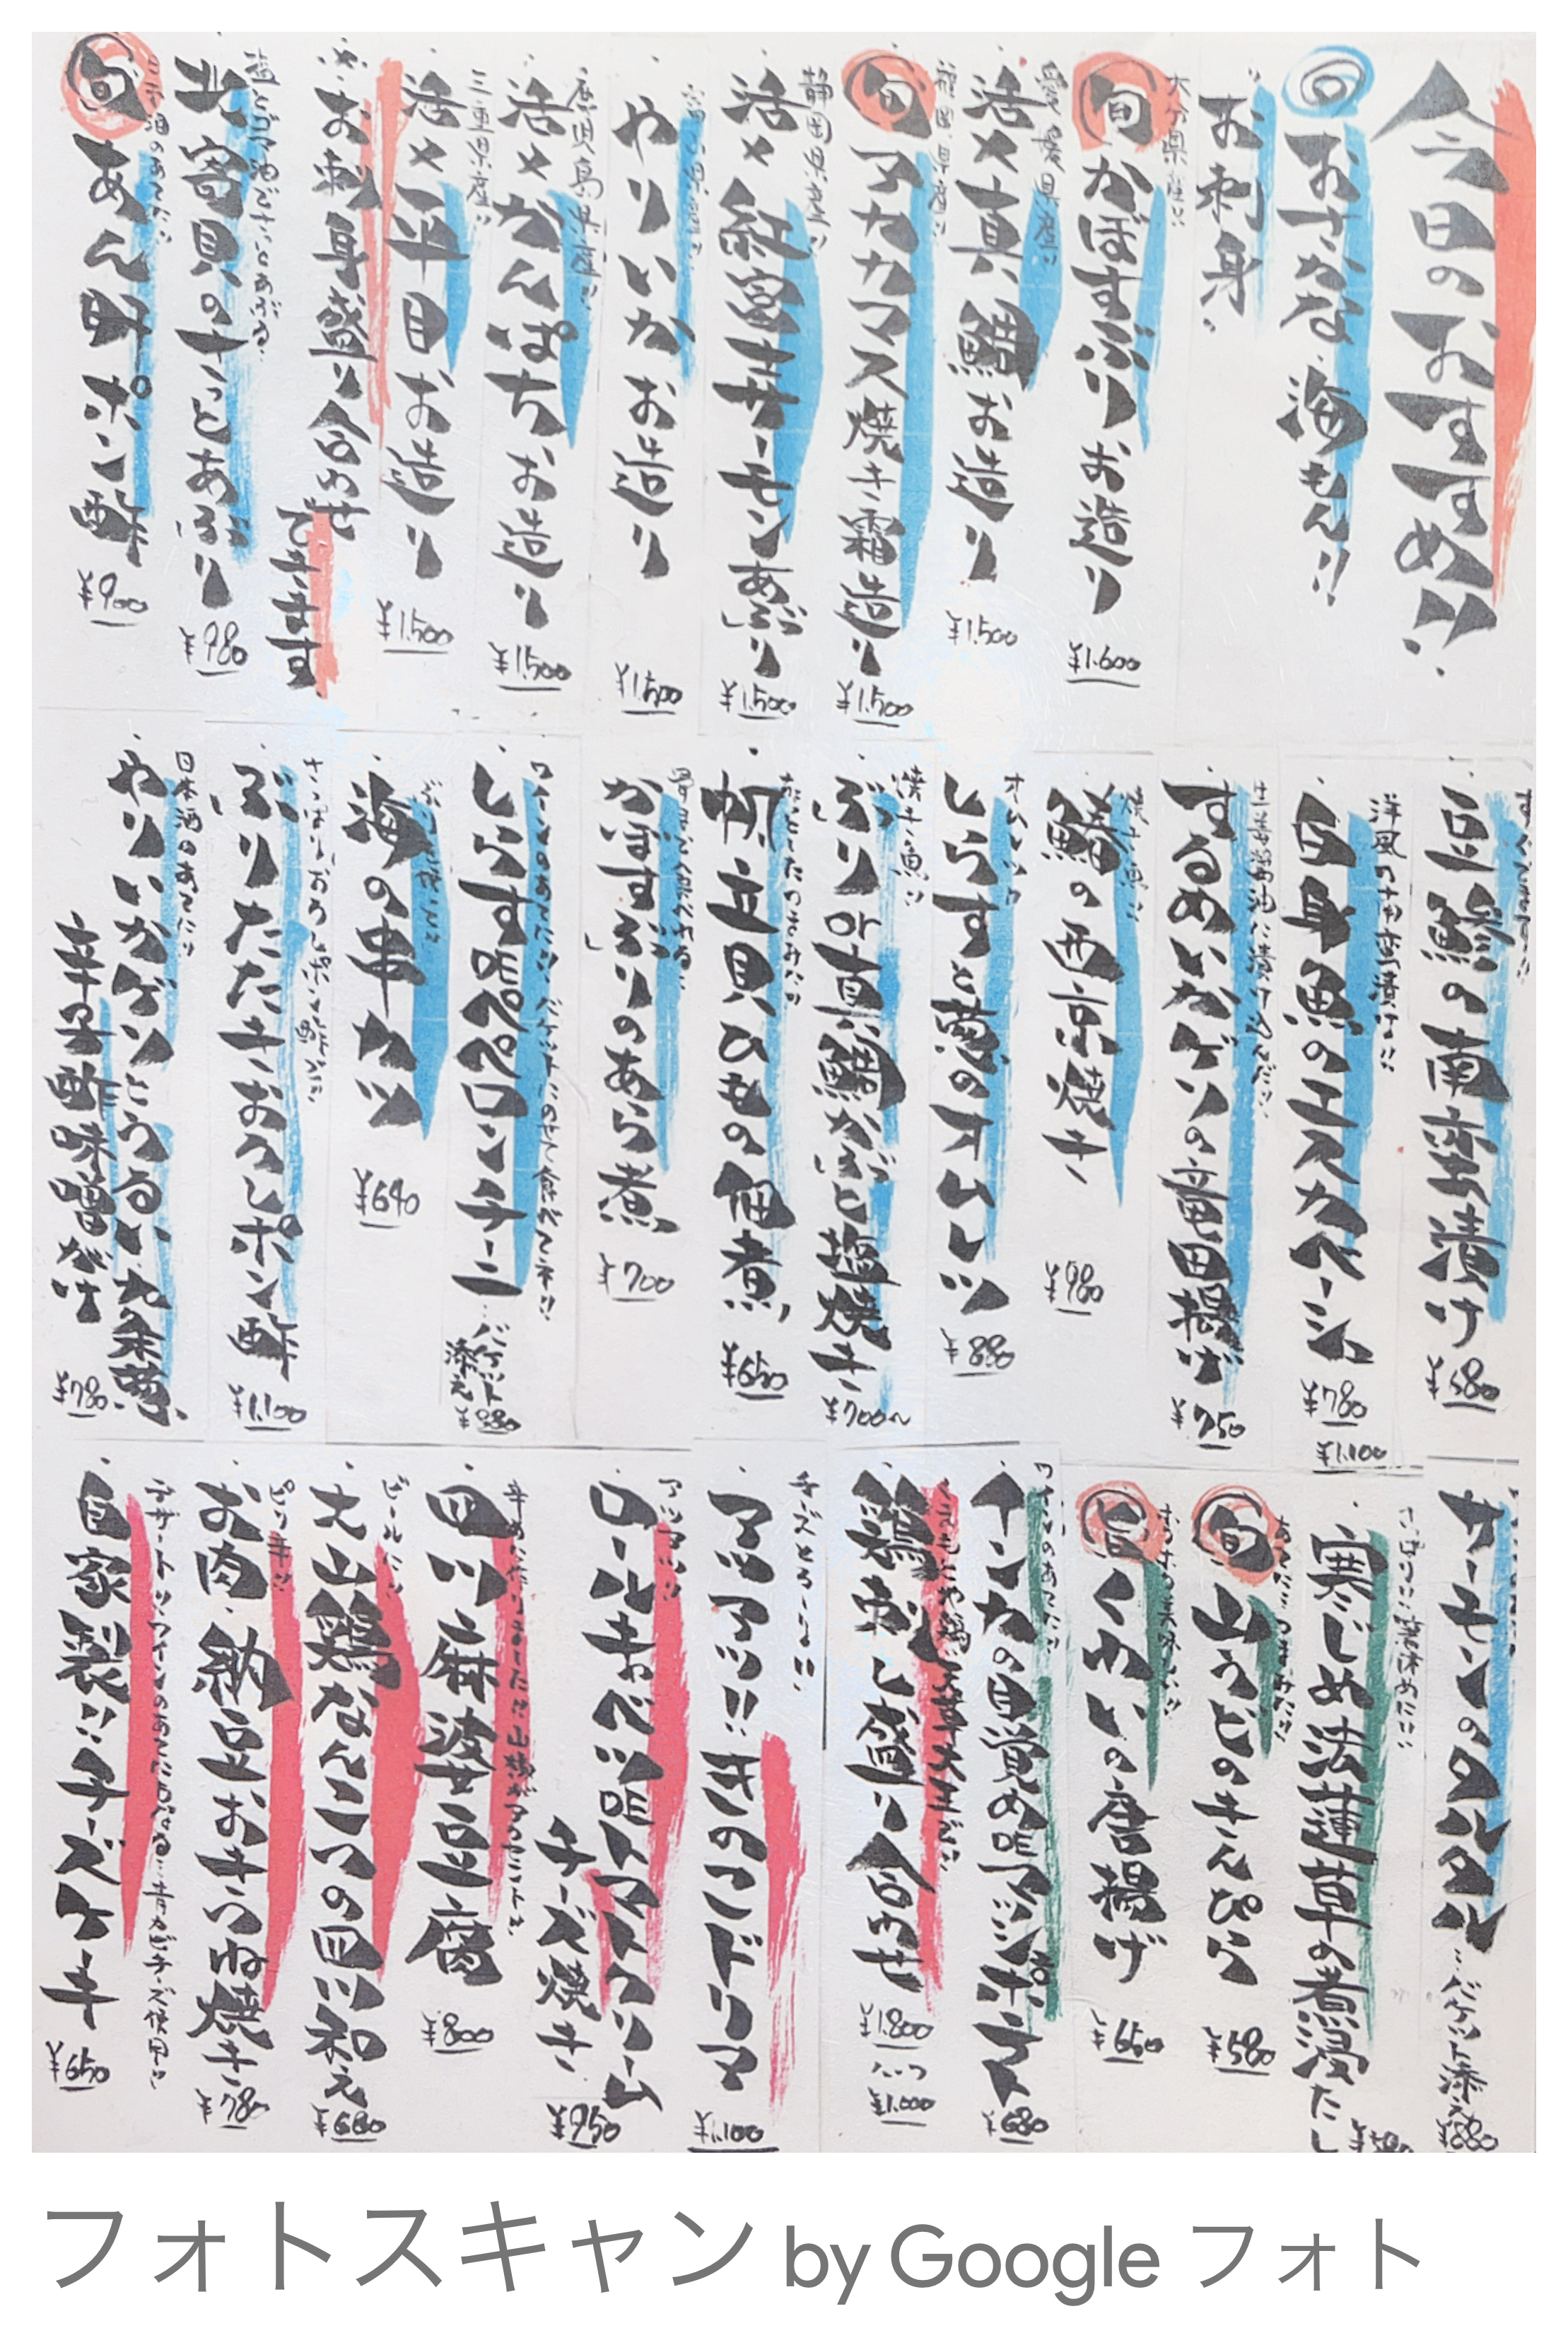 今日のおすすめ!!
旬 おさかな 海もん!!
お刺身
大分県産!!
旬 かぼすぶりお造り
¥1.600
愛媛県産!!
活〆真鯛お造り
¥1.500
福岡県産!!
旬 アカカマス焼き霜造り
¥1.500
静岡県産!!
活〆紅富士サーモンあぶり
¥1.500
やりいかお造り
¥1.500
鹿児島県産!!
活〆かんぱちお造り
¥1.500
三重県産!!
活〆平目お造り
¥1.500
お刺身盛り合わせ
できます
塩とごま油でさっとあぶる
北寄貝のさっとあぶり
¥980
旬 あん肝ポン酢
¥900
豆鯵の南蛮漬け
¥680
洋風の南蛮漬け!!
白身魚のエスカベーシュ
¥780
生姜醤油に漬け込んだ!!
するめいかゲソの竜田揚げ
¥750
焼き魚!!
鰆の西京焼き
¥980
オムレツ
しらすと葱のオムレツ
¥880
焼き魚!!
ぶりor真鯛かぶと塩焼き
¥700~
帆立貝ひもの佃煮
¥650
かぼすぶりのあら煮
¥700
ワインのあてに!! バケットにのせて食べてネ!!
しらすDEペペロンチーニ
…バケット添え
¥880
海の串カツ
¥640
さっぱりおろしポン酢で!!
ぶりたたきおろしポン酢
¥1.100
日本酒のあてに!!
やりいかゲソとうるい、九条葱、
辛子酢味噌がけ
¥780
サーモンのタルタル…バケット添え
¥880
¥1.100
寒じめ法蓮草の煮浸たし
旬 山うどのきんぴら
¥580
旨 くわいの唐揚げ
¥650
ワインのあてに!!
インカの目覚めDEマッシュポテト
¥680
鶏刺し盛り合わせ
¥1.800
ハーフ
¥1.000
チーズとろーり!!
アツアツ!! きのこドリア
¥1.100
アツアツ!!
ロールキャベツDEトマトクリーム
チーズ焼き
¥950
四川麻婆豆腐
¥800
ビールに!!
大山鶏なんこつの四川和え
¥680
ピリ辛!!
お肉・納豆おきつね焼き
¥780
デザート!! ワインのあてにもなる…青カビチーズ使用!!
自家製!! チーズケーキ
¥650
フォトスキャン by Google フォト